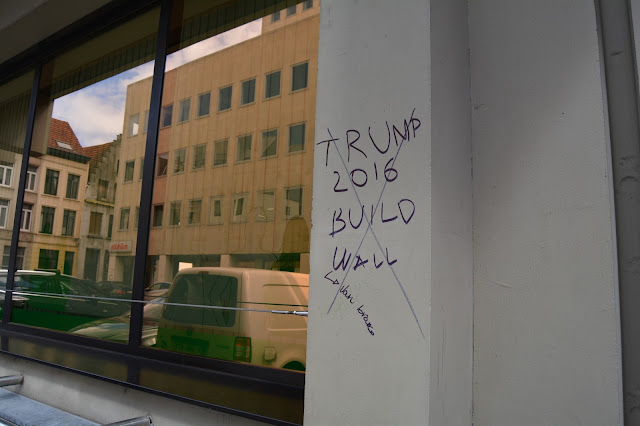 TRUMP
2016
BUILD
WALL